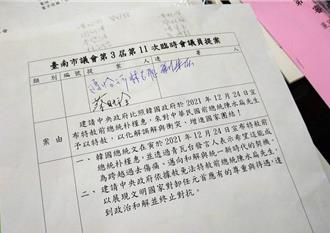 臺南市議會第3屆第11次臨時會議員提案
類別
編號
提案人
連署人
案由
建請中央政府比照韓國政府於2021年12月24日宣
布特赦前總統朴槿惠,對中華民國前總統陳水扁先生,
予以特赦,以化解誤解與衝突,增進國家團結!
一、韓國總統文在寅於2021年12月24日宣布特赦前
總統朴槿惠,並透過青瓦台發言人表示希望這能成
為跨越過去傷痛,邁向和解與統一新時代的契機。
二、建請中央政府依據赦免法特赦前總統陳水扁先生,
以展現文明國家對卸任元首應有的尊重與待遇,達
到政治和解並終止對抗。